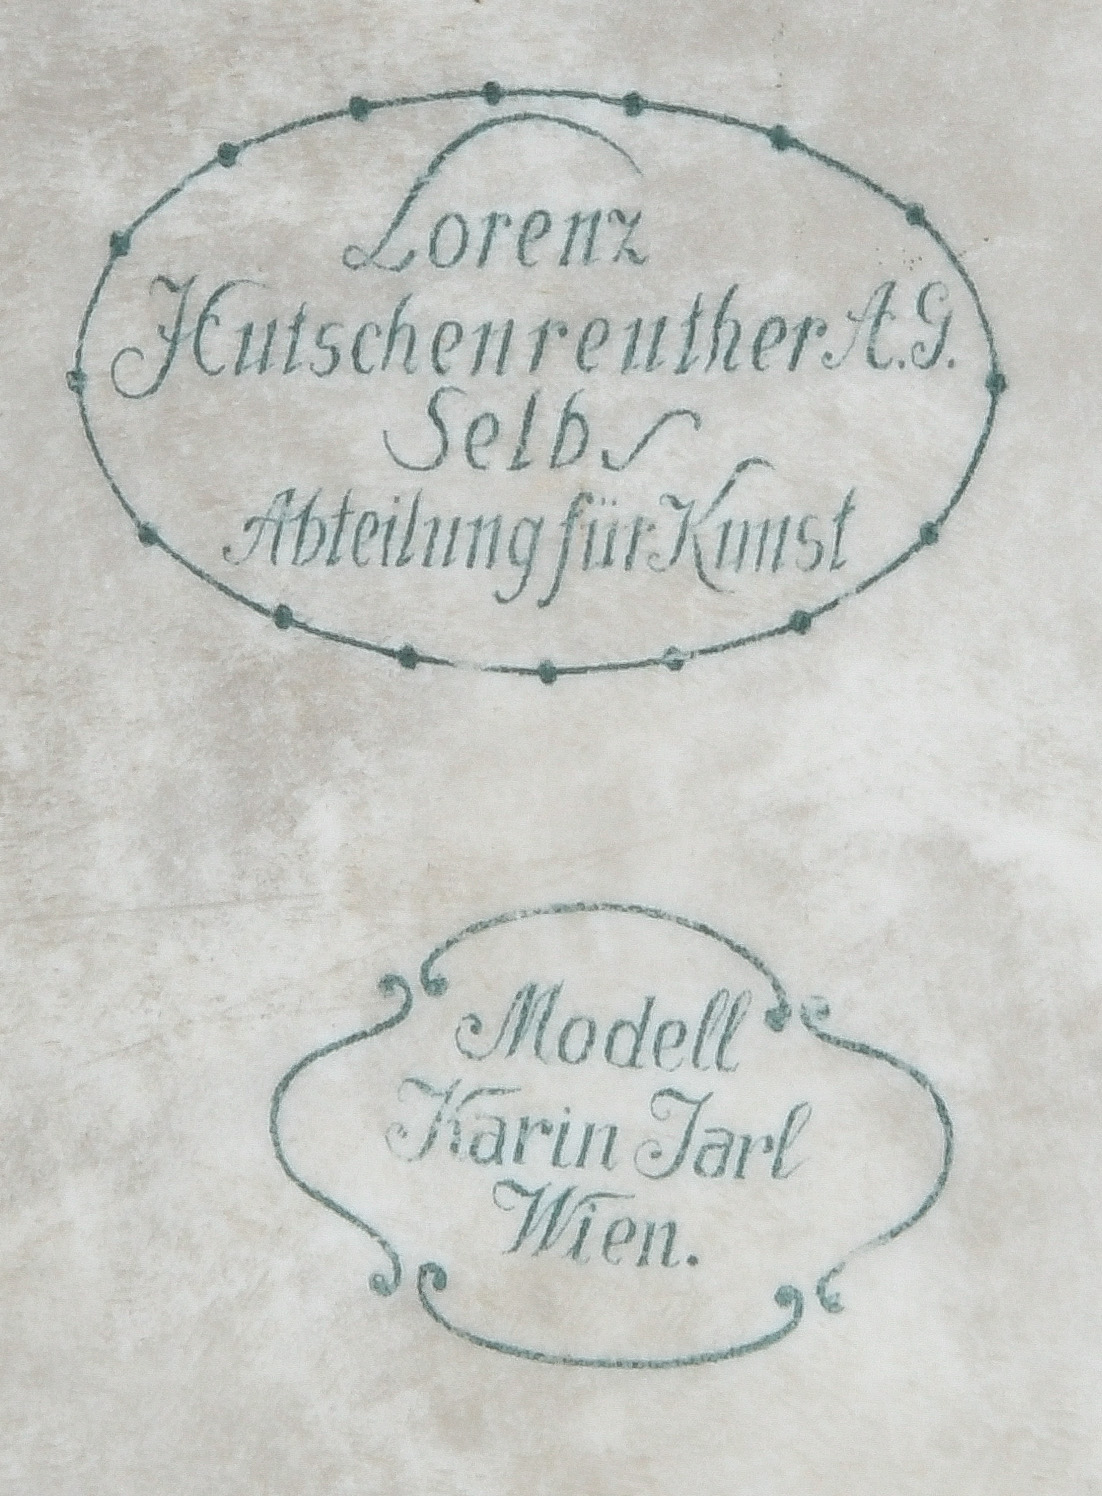 Lorenz
Hutschenreuther A.G.
Selb
Abteilung für Kunst
Modell
Karin Jarl
Wien.